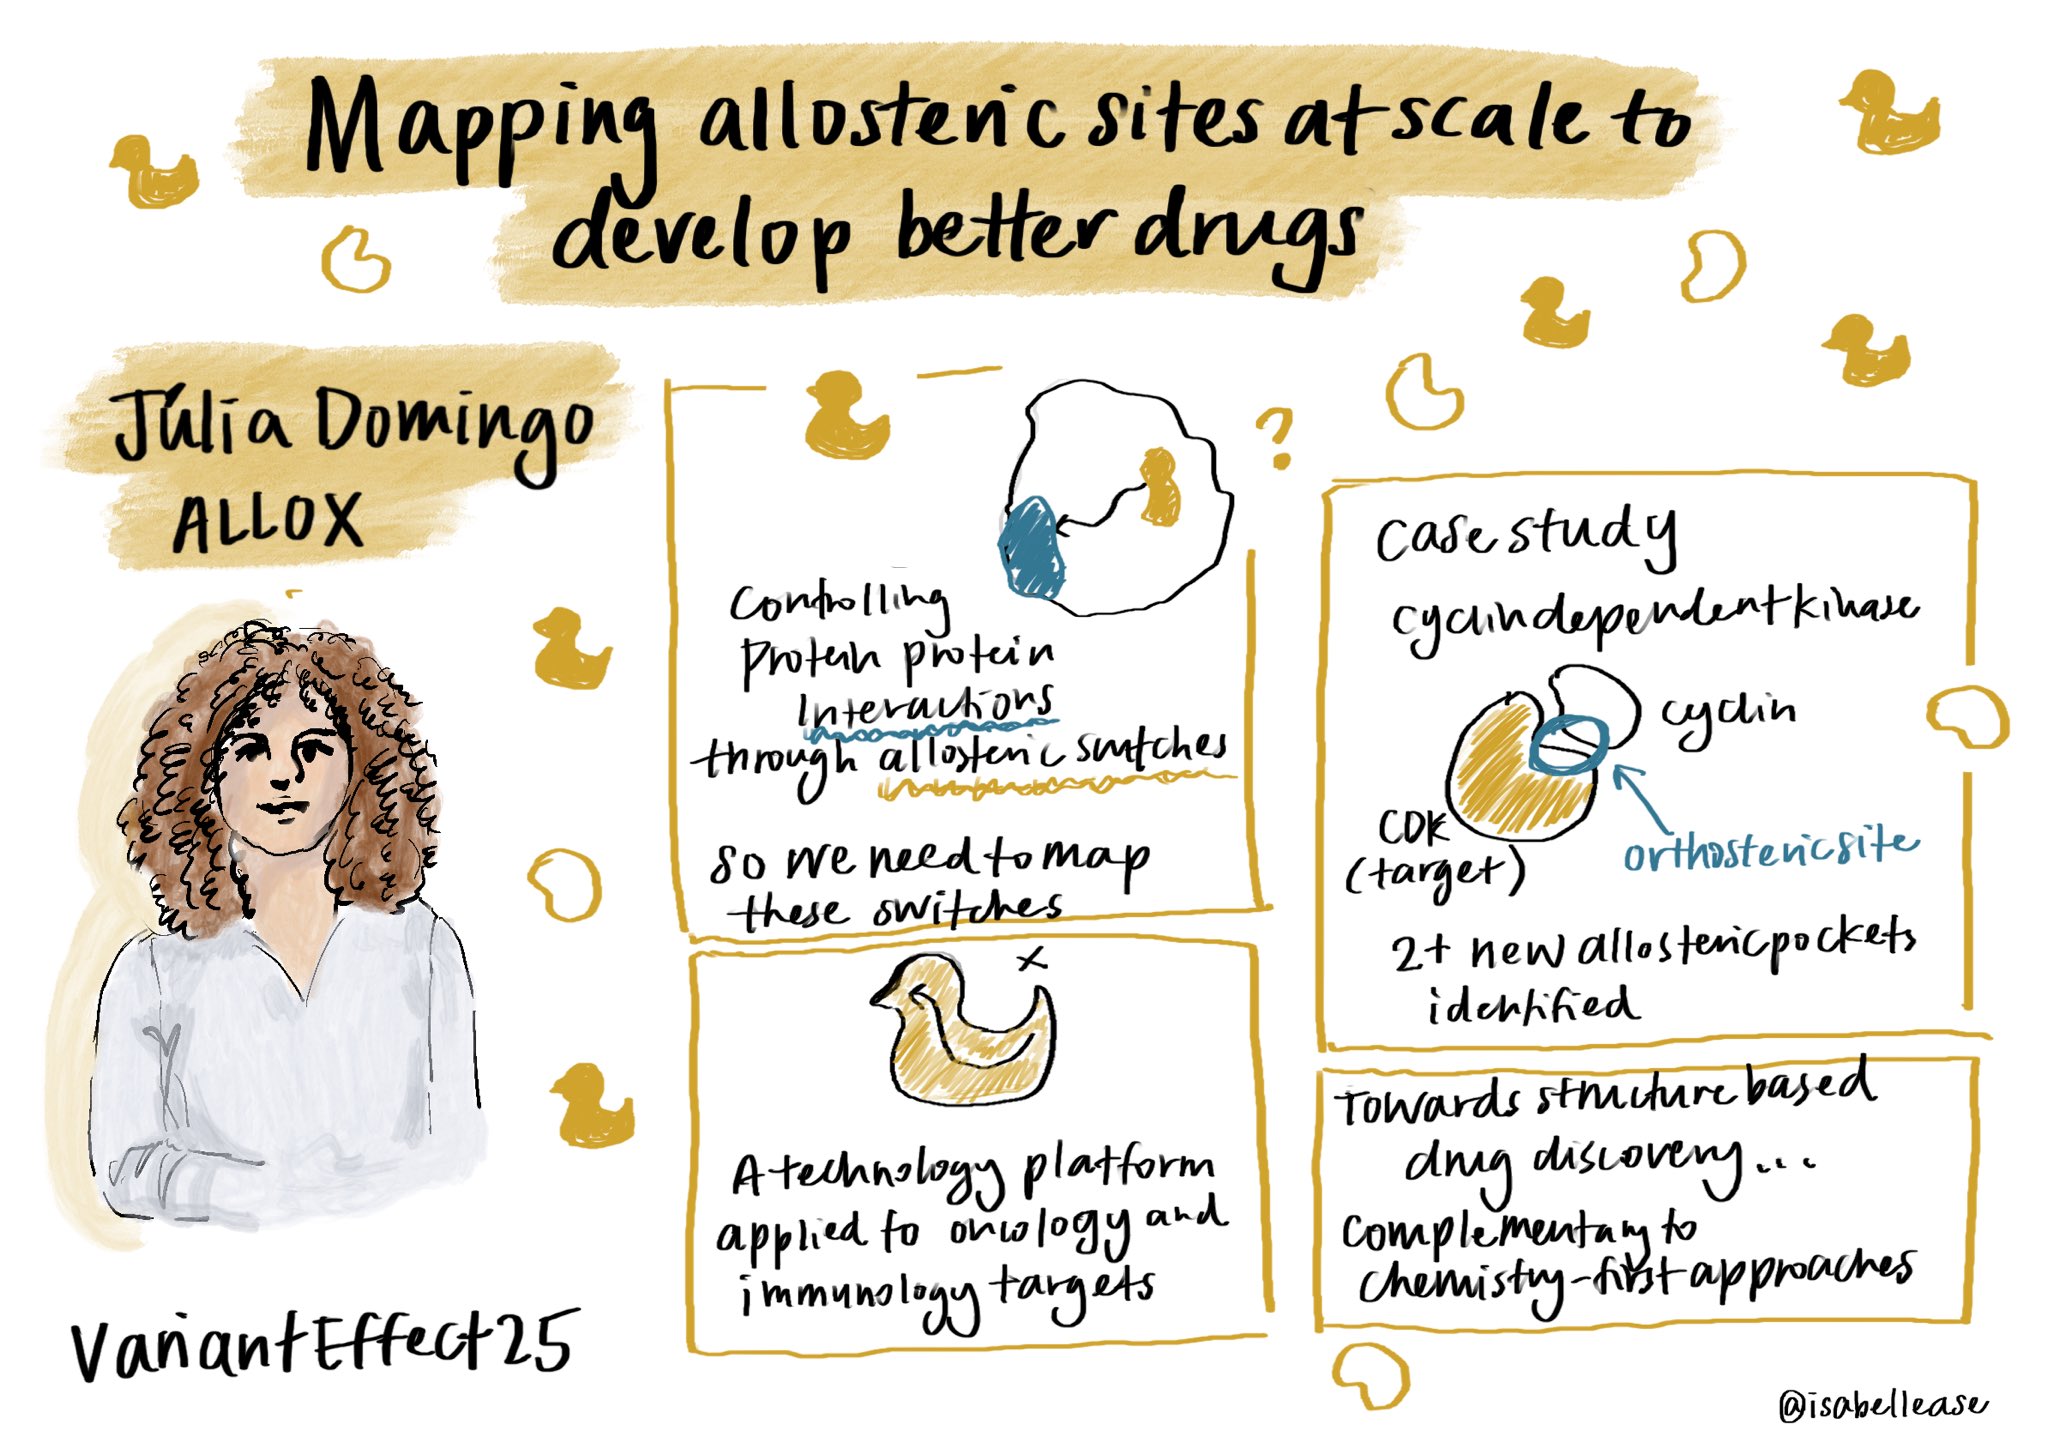 Mapping allosteric sites at scale to
develop better drugs
Júlia Domingo
ALLOX
?
Controlling
protein protein
interactions
through allosteric switches
so we need to map
these switches
x
A technology platform
applied to oncology and
immunology targets
case study
cyclin dependent kinase
cyclin
CDK
(target)
orthosteric site
2+ new allosteric pockets
identified
Towards structure based
drug discovery...
complementary to
chemistry-first approaches
VariantEffect25
@isabellease